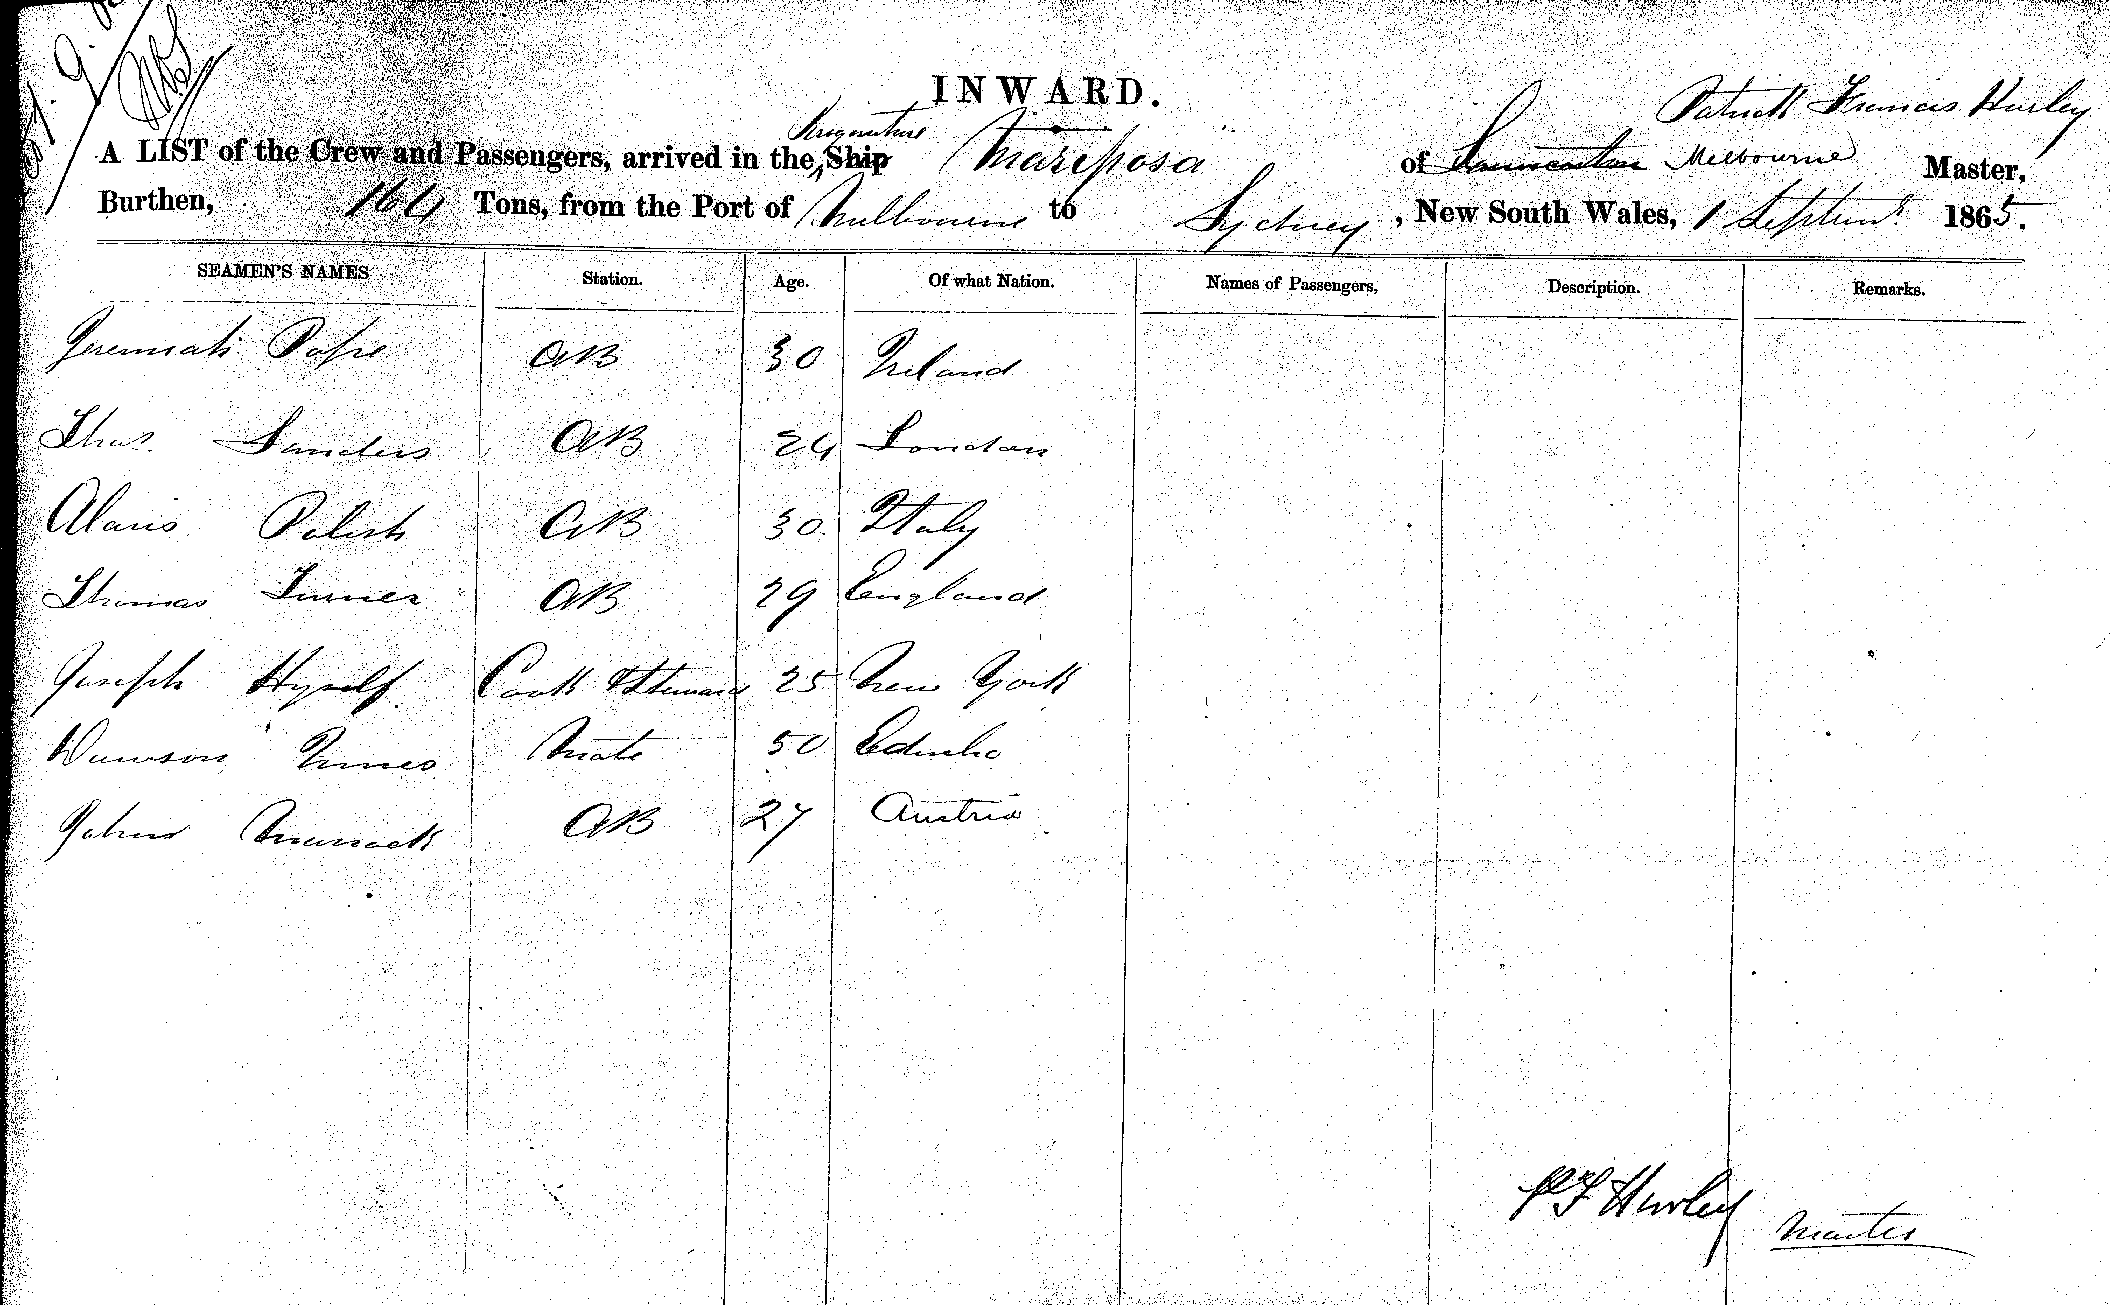 INWARD.
Patrick Francis Hurley
Brigantine
A LIST of the Crew and Passengers, arrived in the Ship Mariposa of Launceston Melbourne Master,
Burthen, 164 Tons, from the Port of Melbourne to Sydney, New South Wales, 1 Septemr 1865.
SEAMEN'S NAMES Station. Age. Of what Nation. Names of Passengers, Description. Remarks.
Jeremiah Pope AB 30 Ireland
Thos. Sanders AB 24 London
Polish AB 30 Italy
Thomas Turner AB 29 England
Joseph Cook & Steward 25 New York
Dawson James Mate 50 Edinbo
John AB 27 Austria
P F Hurley Master